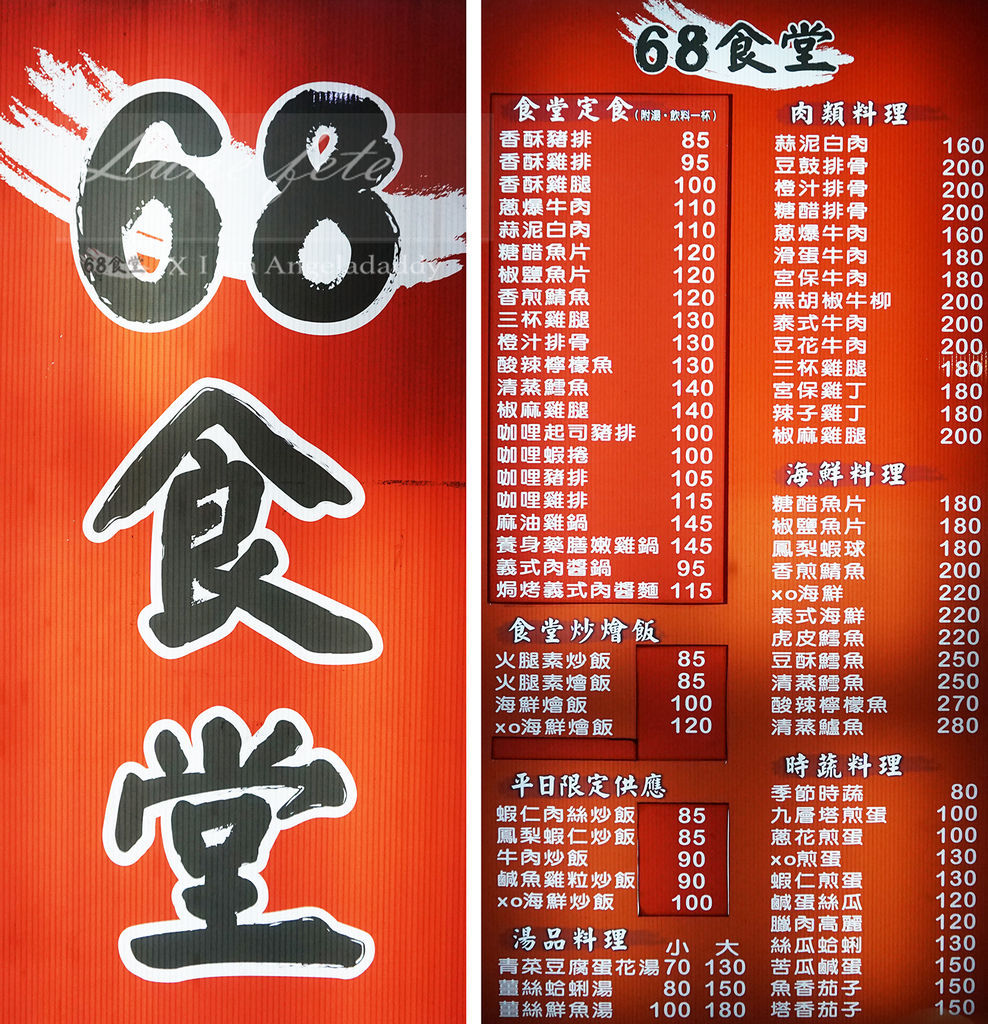 68
食
堂
Luna fete
68食堂 X I am Angeladaddy
68食堂
食堂定食(附湯·飲料一杯)
香酥豬排 85
香酥雞排 95
香酥雞腿 100
蔥爆牛肉 110
蒜泥白肉 110
糖醋魚片 120
椒鹽魚片 120
香煎鯖魚 120
三杯雞腿 130
橙汁排骨 130
酸辣檸檬魚 130
清蒸鱈魚 140
椒麻雞腿 140
咖哩起司豬排 100
咖哩蝦捲 100
咖哩豬排 105
咖哩雞排 115
麻油雞鍋 145
養身藥膳嫩雞鍋 145
義式肉醬鍋 95
焗烤義式肉醬麵 115
食堂炒燴飯
火腿素炒飯 85
火腿素燴飯 85
海鮮燴飯 100
xo海鮮燴飯 120
平日限定供應
蝦仁肉絲炒飯 85
鳳梨蝦仁炒飯 85
牛肉炒飯 90
鹹魚雞粒炒飯 90
xo海鮮炒飯 100
湯品料理 小 大
青菜豆腐蛋花湯 70 130
薑絲蛤蜊湯 80 150
薑絲鮮魚湯 100 180
肉類料理
蒜泥白肉 160
豆鼓排骨 200
橙汁排骨 200
糖醋排骨 200
蔥爆牛肉 160
滑蛋牛肉 180
宮保牛肉 180
黑胡椒牛柳 200
泰式牛肉 200
豆花牛肉 200
三杯雞腿 180
宮保雞丁 180
辣子雞丁 180
椒麻雞腿 200
海鮮料理
糖醋魚片 180
椒鹽魚片 180
鳳梨蝦球 180
香煎鯖魚 200
xo海鮮 220
泰式海鮮 220
虎皮鱈魚 220
豆酥鱈魚 250
清蒸鱈魚 250
酸辣檸檬魚 270
清蒸鱸魚 280
時蔬料理
季節時蔬 80
九層塔煎蛋 100
蔥花煎蛋 100
xo煎蛋 130
蝦仁煎蛋 130
鹹蛋絲瓜 120
臘肉高麗 120
絲瓜蛤蜊 130
苦瓜鹹蛋 150
魚香茄子 150
塔香茄子 150